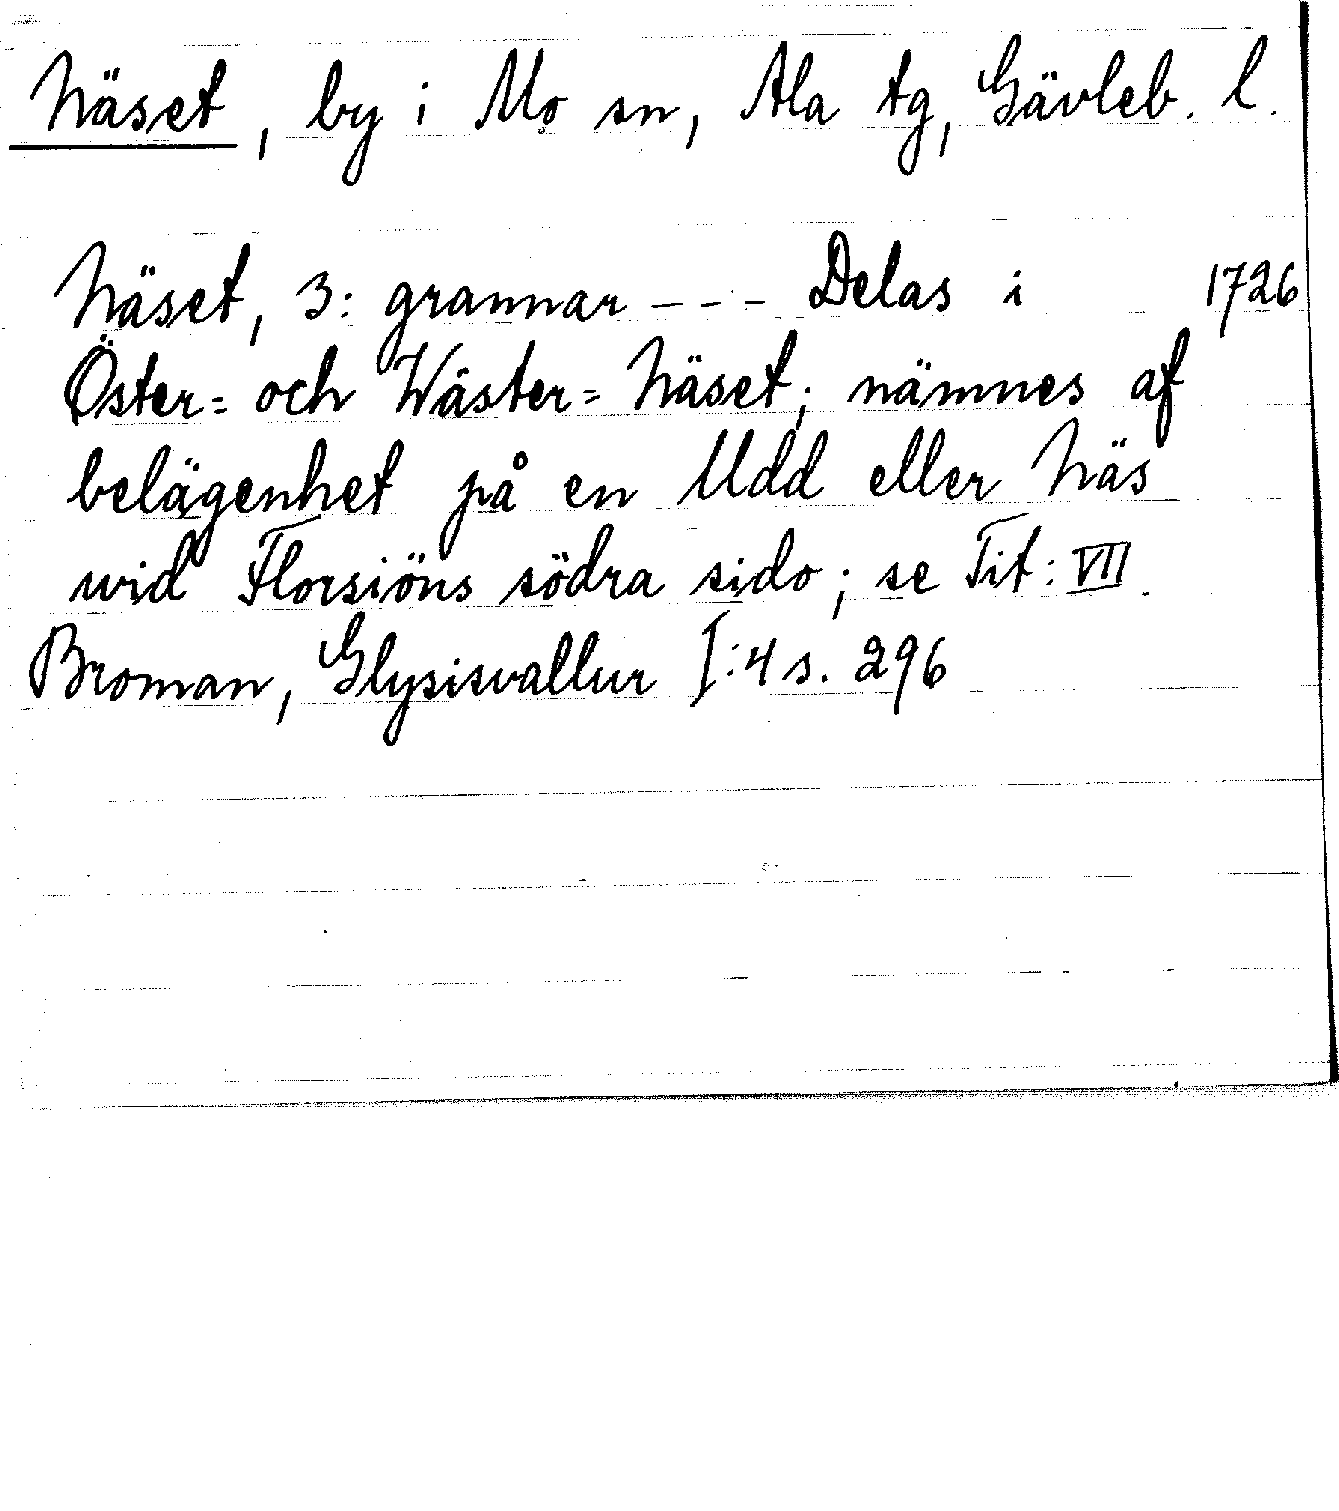 Näset, by i Mo sn, Ala tg, Gävleb. l.
Näset, 3: grannar - - - Delas i 1726
Öster= och Wäster= Näset; nämnes af
belägenhet på en Udd eller Näs
wid Florsiöns södra sido; se Tit: VII.
Broman, Glysisvallur I:4 s. 296